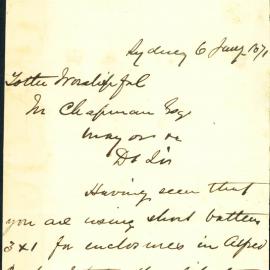 Sydney 6 Jany 187
To the Worshipful
M Chapman Esq
Mayor
Dr Sir
Having seen that
you are using short battens
3x1 for enclosures in Alfred